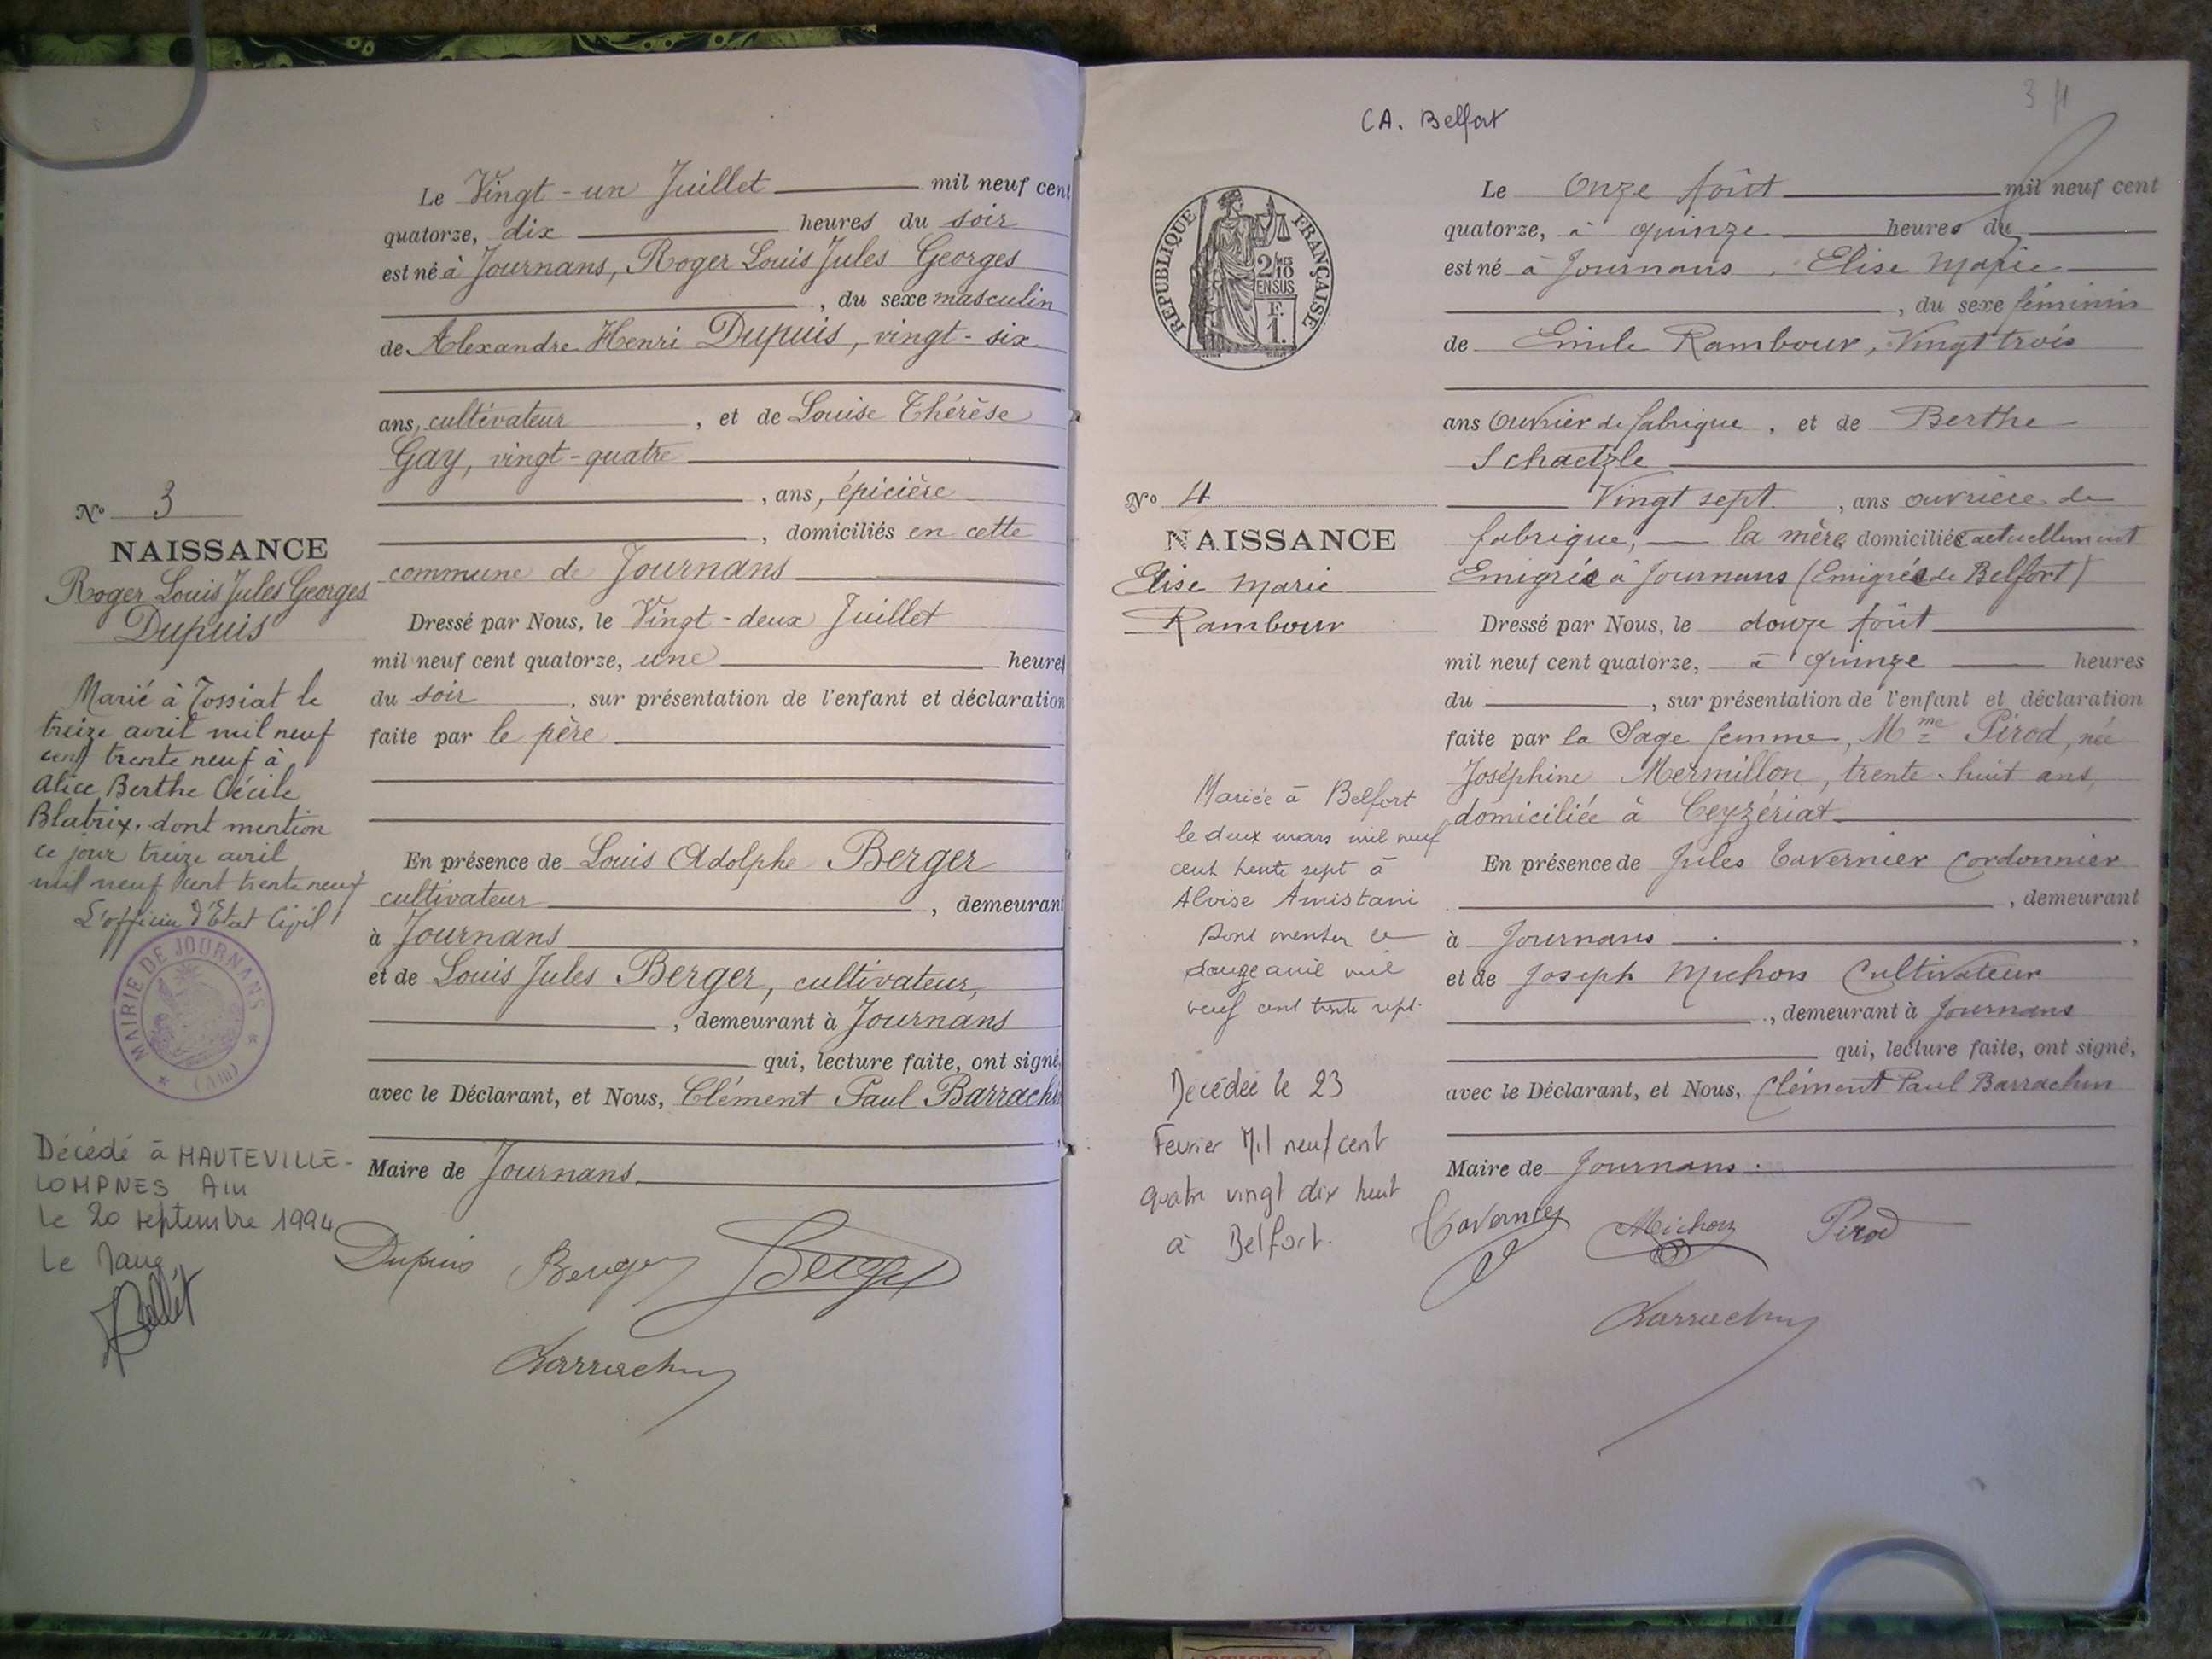 Le Vingt-un Juillet mil neuf cent
quatorze, dix heures du soir
est né à Journans, Roger Louis Jules Georges
, du sexe masculin
de Alexandre Henri Dupuis, vingt-six
ans, cultivateur , et de Louise Thérèse
Gay, vingt-quatre
, ans, épicière
, domiciliés en cette
commune de Journans
Dressé par Nous, le Vingt-deux Juillet
mil neuf cent quatorze, une heures
du soir , sur présentation de l'enfant et déclaration
faite par le père
En présence de Louis Adolphe Berger
cultivateur , demeurant
à Journans
et de Louis Jules Berger, cultivateur,
, demeurant à Journans
qui, lecture faite, ont signé,
avec le Déclarant, et Nous, Clément Paul Barrachin
Maire de Journans.
Dupuis Berger Berger
Barrachin
No 3
NAISSANCE
Roger Louis Jules Georges
Dupuis
Marié à Tossiat le
treize avril mil neuf
cent trente neuf à
Alice Berthe Cécile
Blatrix. dont mention
ce jour treize avril
mil neuf cent trente neuf
L'officier d'Etat Civil
MAIRIE DE JOURNANS
(Ain)
Décédé à HAUTEVILLE-
LOMPNES Ain
le 20 septembre 1994
Le Maire
CA. Belfort
REPUBLIQUE FRANÇAISE
2/10
EN SUS
F.
1.
No 4
NAISSANCE
Elise Marie
Rambour
Mariée à Belfort
le deux mars mil neuf
cent trente sept à
Alvise Amistani
Dont mention ce
douze avril mil
neuf cent trente sept.
Décédée le 23
Fevrier Mil neuf cent
quatre vingt dix huit
à Belfort.
Le Onze Août mil neuf cent
quatorze, à quinze heures du
est né à Journans, Elise Marie
, du sexe féminin
de Emile Rambour, Vingt trois
ans Ouvrier de fabrique, et de Berthe
Schaetzle
Vingt sept , ans ouvrière de
fabrique, la mère domiciliée actuellement
Emigrée à Journans (Emigrée de Belfort)
Dressé par Nous, le douze Août
mil neuf cent quatorze, à quinze heures
du , sur présentation de l'enfant et déclaration
faite par la Sage femme, Mme Pirod, née
Joséphine Mermillon, trente-huit ans,
domiciliée à Ceyzériat
En présence de Jules Tavernier Cordonnier
, demeurant
à Journans ,
et de Joseph Michon Cultivateur
, demeurant à Journans
qui, lecture faite, ont signé,
avec le Déclarant, et Nous, Clément Paul Barrachin
Maire de Journans.
Tavernier Michon Pirod
Barrachin